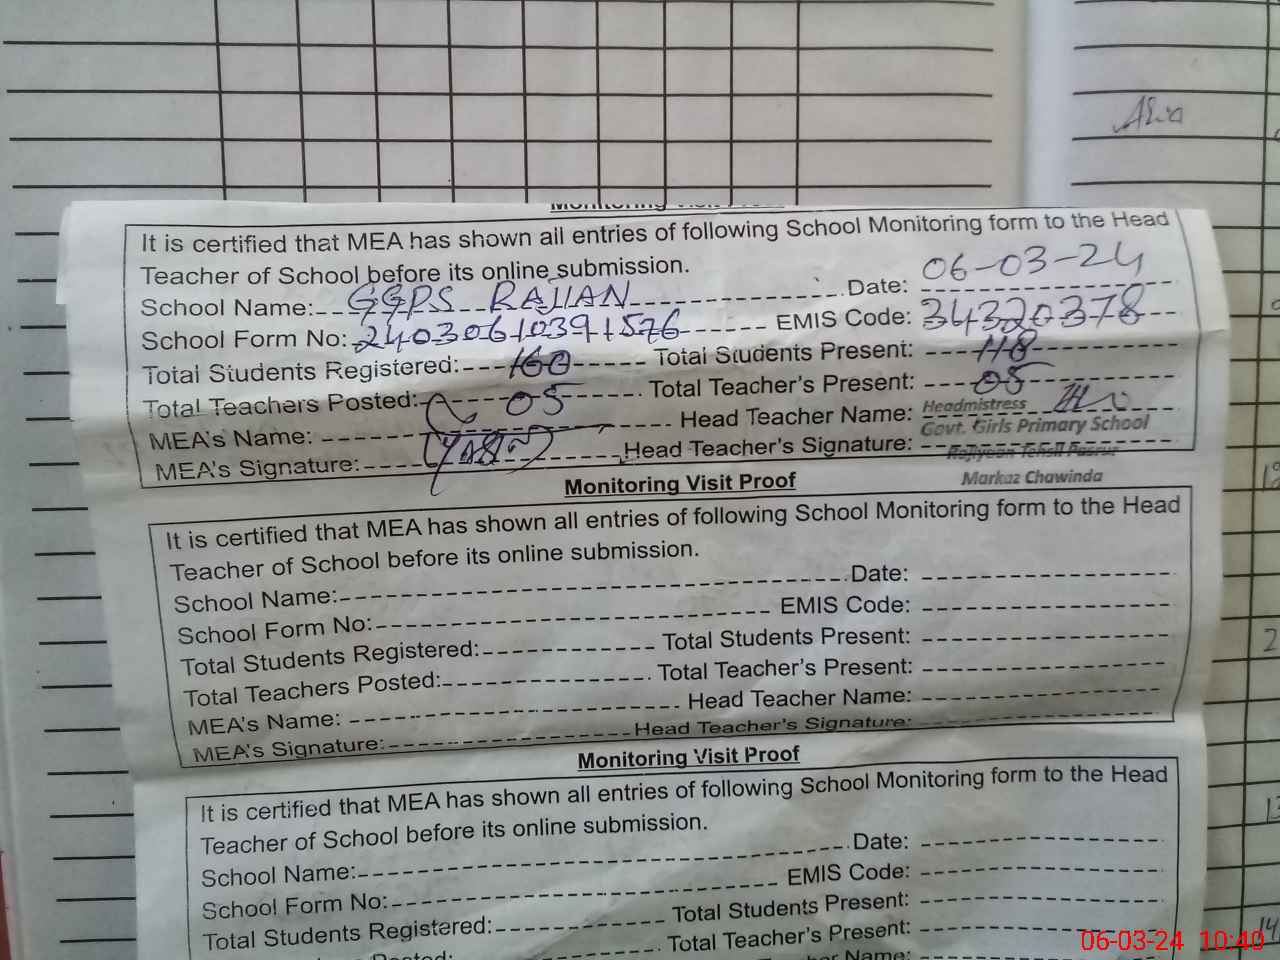 Monitoring Visit Proof
It is certified that MEA has shown all entries of following School Monitoring form to the Head
Teacher of School before its online submission.
School Name: GGPS RAJIAN Date: 06-03-24
School Form No: EMIS Code: 34320378
Total Students Registered: 160 Total Students Present: 118
Total Teachers Posted: 05 Total Teacher's Present: 05
MEA's Name: Head Teacher Name: Headmistress
Govt. Girls Primary School
MEA's Signature: Head Teacher's Signature:
Markaz Chawinda
Monitoring Visit Proof
It is certified that MEA has shown all entries of following School Monitoring form to the Head
Teacher of School before its online submission.
School Name: Date:
School Form No: EMIS Code:
Total Students Registered: Total Students Present:
Total Teachers Posted: Total Teacher's Present:
MEA's Name: Head Teacher Name:
MEA's Signature: Head Teacher's Signature:
Monitoring Visit Proof
It is certified that MEA has shown all entries of following School Monitoring form to the Head
Teacher of School before its online submission.
School Name: Date:
School Form No: EMIS Code:
Total Students Registered: Total Students Present:
Total Teacher's Present:
06-03-24 10:40